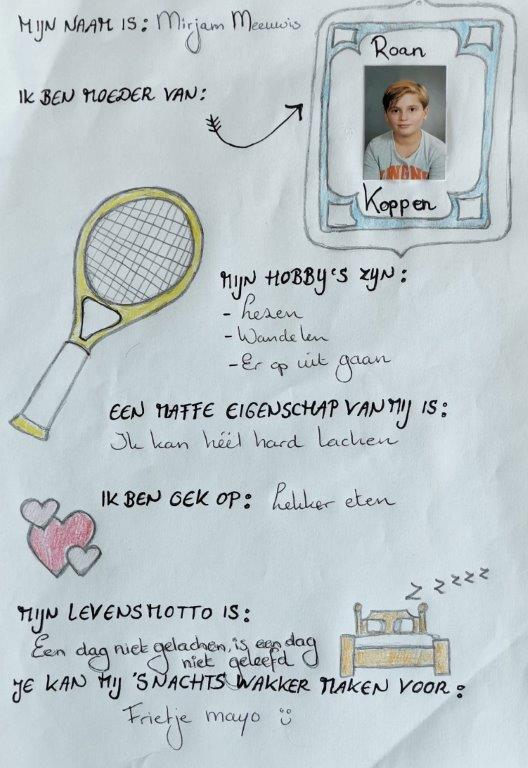 MIJN NAAM IS: Mirjam Meeuwis
Roan
IK BEN MOEDER VAN:
Koppen
MIJN HOBBY'S ZIJN:
- Lezen
- Wandelen
- Er op uit gaan
EEN MAFFE EIGENSCHAP VAN MIJ IS:
Ik kan héél hard lachen
IK BEN GEK OP: Lekker eten
Z ZZZZ
MIJN LEVENSMOTTO IS:
Een dag niet gelachen, is een dag
niet geleefd
JE KAN MIJ 'S NACHTS WAKKER MAKEN VOOR:
Frietje mayo